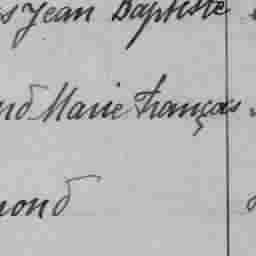 s Jean Baptiste
nd Marie François
mond